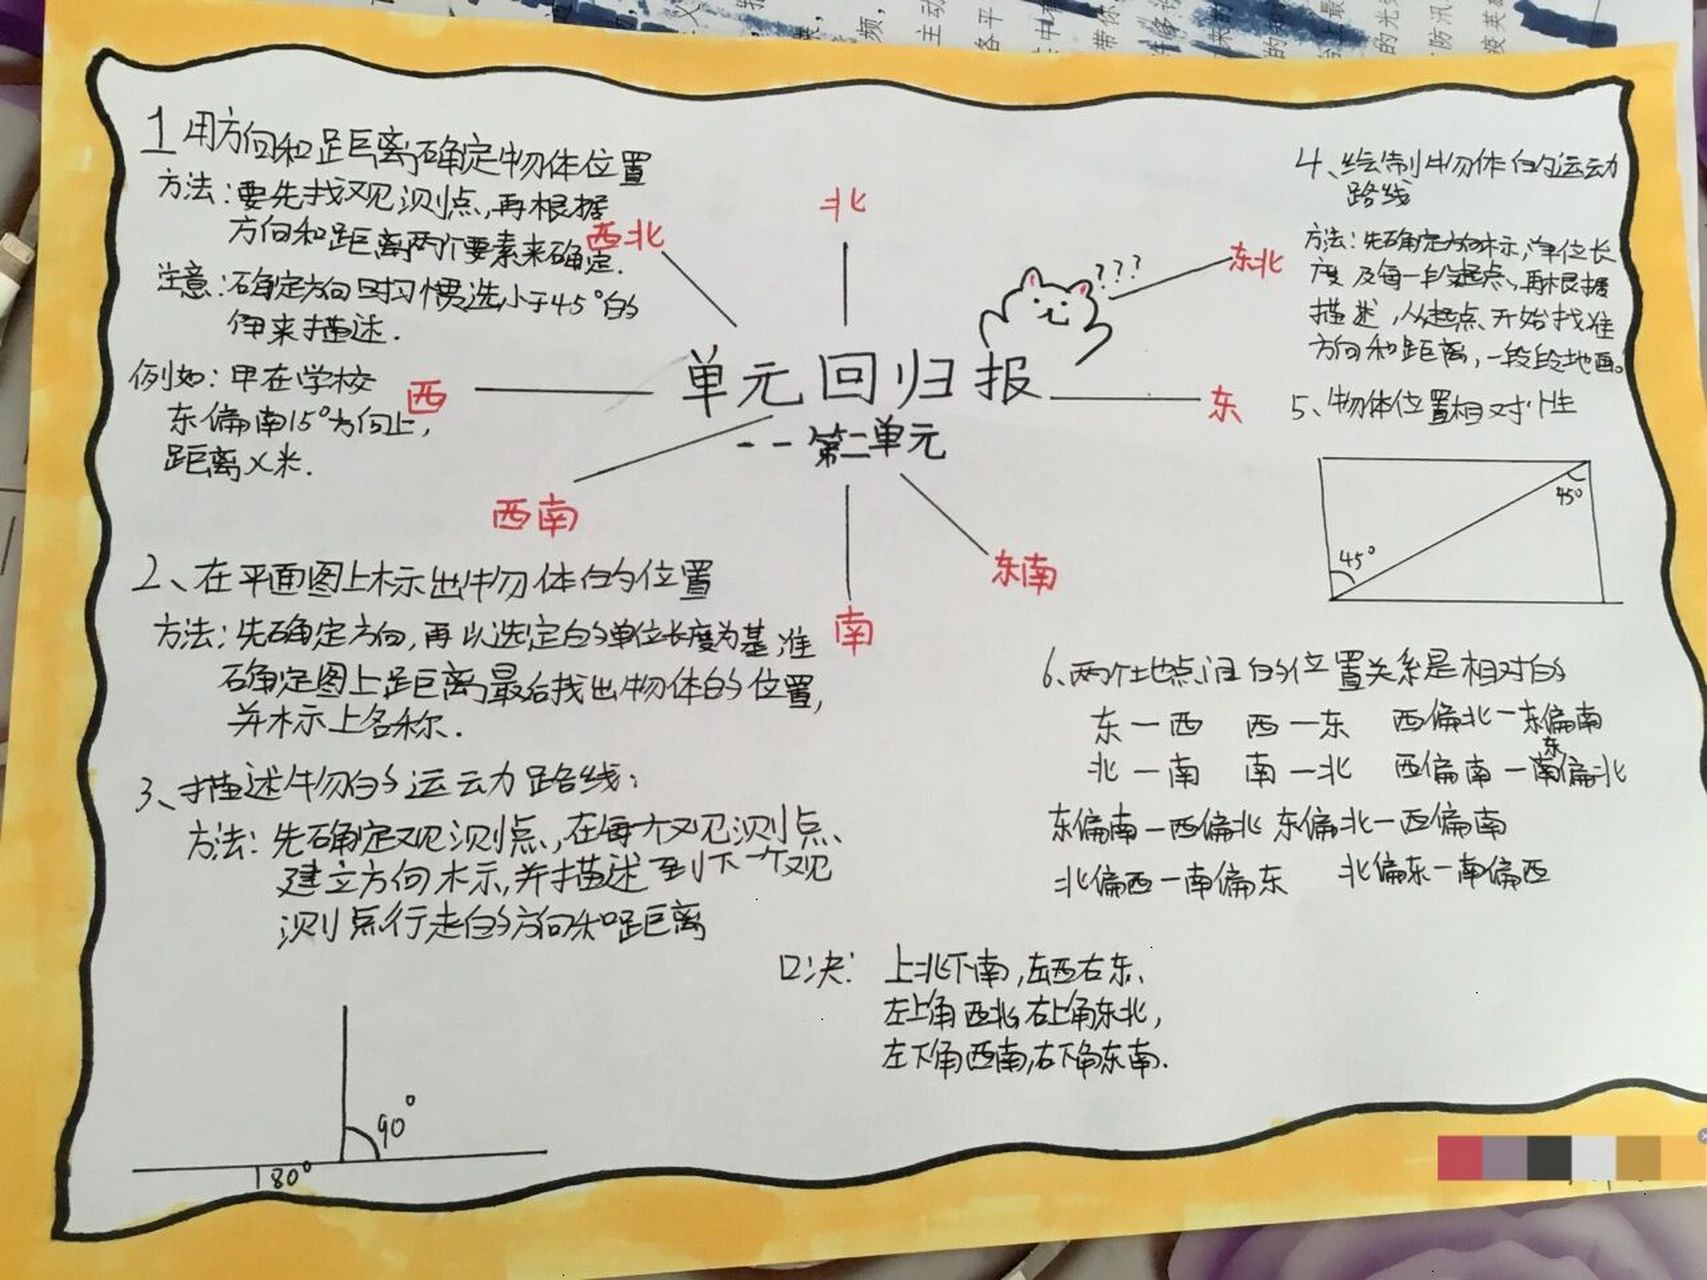 1 用方向和距离确定物体位置
方法:要先找观测点,再根据
方向和距离两个要素来确定.
注意:确定方向时习惯选小于45°的
来描述.
例如:甲在学校
东偏南15°方向上,
距离X米.
西北
北
东北
???
西
单元回归报
东
--第二单元
西南
南
东南
2、在平面图上标示出物体的位置
方法:先确定方向,再以选定的单位长度为基准
确定图上距离最后找出物体的位置,
并标示上名称.
3、描述物的运动路线:
方法:先确定观测点,在每个观测点、
建立方向标示,并描述到下一个观
测点行走的方向和距离
90°
180°
4、绘制物体的运动
路线
方法:先确定方向标示,单位长
度及每一段起点,再根据
描述,从起点开始找准
方向和距离,一段段地画。
5、物体位置相对性
45°
45°
6.两个地点间的位置关系是相对的
东—西 西—东 西偏北—东偏南
东
北—南 南—北 西偏南—南偏北
东偏南—西偏北 东偏北—西偏南
北偏西—南偏东 北偏东—南偏西
口决: 上北下南,左西右东、
左上角西北,右上角东北,
左下角西南,右下角东南.